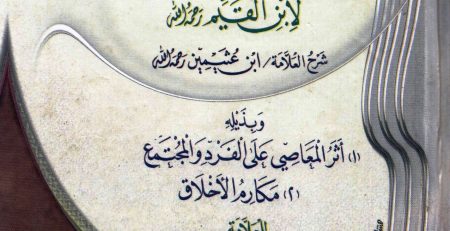 لِابْنِ القَيِّم رَحِمَهُ اللَّه
شَرْحُ العَلَّامَة/ ابْنِ عُثَيْمِين رَحِمَهُ اللَّه
وَبِذَيْلِهِ
(١) أَثَرُ المَعَاصِي عَلَى الفَرْدِ وَالمُجْتَمَعِ
(٢) مَكَارِمُ الأَخْلَاقِ